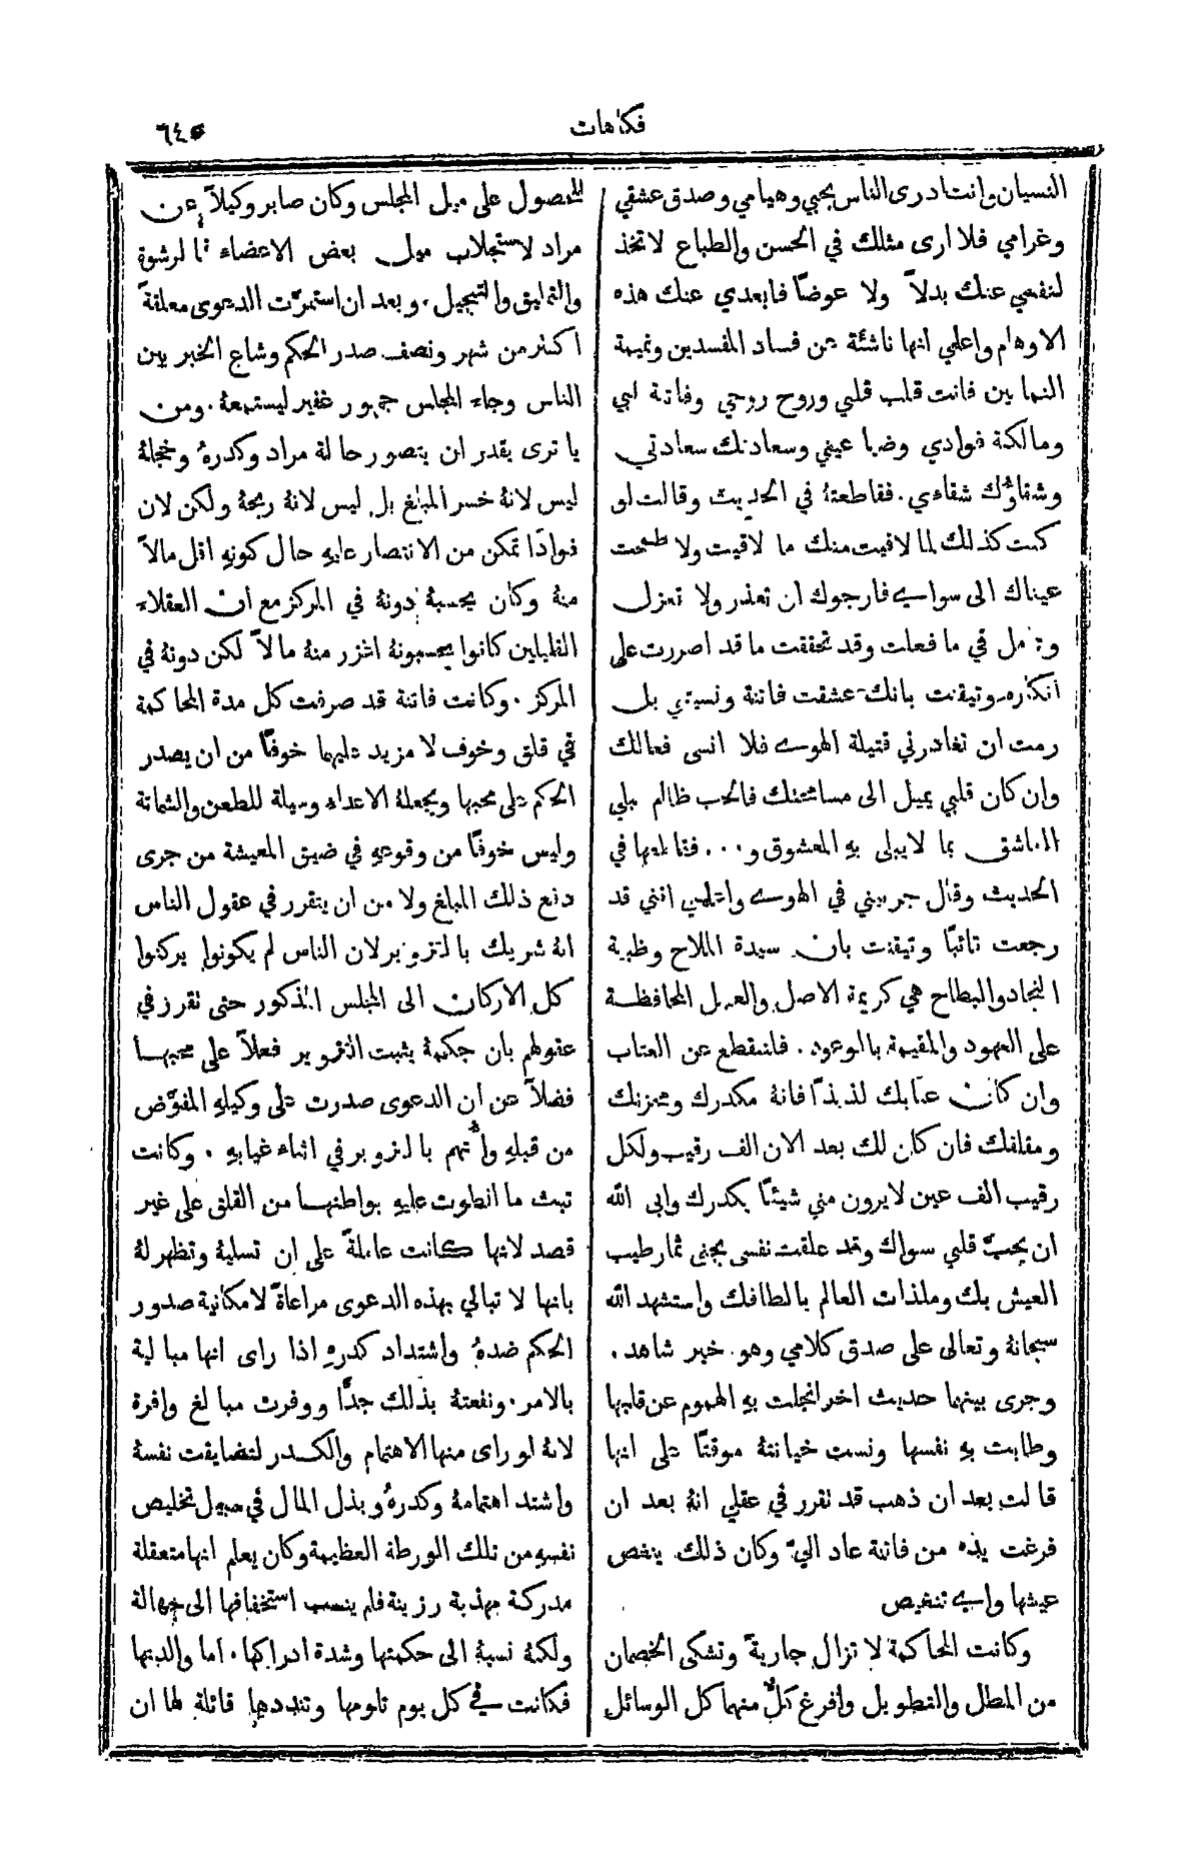 فكاهات
٦٤٥
النسيان وانت ادرى الناس بحبي وهيامي وصدق عشقي
وغرامي فلا ارى مثلك في الحسن والطباع لاتخذ
لنفسي عنك بدلاً ولا عوضاً فابعدي عنك هذه
الاوهام واعلمي انها ناشئة عن فساد المفسدين ونميمة
النمامين فانت قلب قلبي وروح روحي وفاتنة لبي
ومالكة فوادي وضيا عيني وسعادتك سعادتي
وشقاؤك شقاءي. فقاطعتهُ في الحديث وقالت لو
كنت كذلك لما لاقيت منك ما لاقيت ولا طمحت
عيناك الى سواي فارجوك ان تعذر ولا تعزل
وتامل في ما فعلت وقد تحققت ما قد اصررت على
انكاره وتيقنت بانك عشقت فاتنة ونسيتني بل
رمت ان تغادرني قتيلة الهوى فلا انسى فعالك
وان كان قلبي يميل الى مسامحتك فالحب ظالم بلي
العاشق بما لايبلى بهِ المعشوق و... فقاطعها في
الحديث وقال جربيني في الهوى واعلمي انني قد
رجعت تائباً وتيقنت بان سيدة الملاح وظبية
النجاد والبطاح هي كريمة الاصل والعمل المحافظة
على العهود والمقيمة بالوعود. فلننقطع عن العتاب
وان كان عتابك لذيذاً فانهُ مكدرك ومحزنك
ومقلقك فان كان لك بعد الان الف رقيب ولكل
رقيب الف عين لايرون مني شيئاً يكدرك وابى الله
ان يحبّ قلبي سواك وقد علقت نفسي بجنى ثمار طيب
العيش بك وملذات العالم بالطافك واستشهد الله
سبحانهُ وتعالى على صدق كلامي وهو خير شاهد.
وجرى بينهما حديث اخر انجلت بهِ الهموم عن قلبها
وطابت بهِ نفسها ونست خيانتهُ موقتاً على انها
قالت بعد ان ذهب قد تقرر في عقلي انهُ بعد ان
فرغت يده من فاتنة عاد اليّ وكان ذلك ينغص
عيشها واي تنغيص
وكانت المحاكمة لا تزال جارية وتشكى الخصمان
من المطل والتطويل وافرغ كلٌّ منهما كل الوسائل
للحصول على ميل المجلس وكان صابر وكيلاً عن
مراد لاستجلاب ميل بعض الاعضاء بالرشوة
والتمليق والتبجيل. وبعد ان استمرّت الدعوى معلقة
اكثر من شهر ونصف صدر الحكم وشاع الخبر بين
الناس وجاء المجلس جمهور غفير ليستمعهُ. ومن
يا ترى يقدر ان يتصور حالة مراد وكدرهُ وخجلهُ
ليس لانهُ خسر المبلغ بل ليس لانهُ ربحهُ ولكن لان
فوادًا تمكن من الانتصار عليهِ حال كونهِ اقل مالاً
منهُ وكان يحسبهُ دونهُ في المركز مع ان العقلاء
القليلين كانوا يحسبونهُ اغزر منهُ مالاً لكن دونهُ في
المركز. وكانت فاتنة قد صرفت كل مدة المحاكمة
في قلق وخوف لا مزيد عليهما خوفًا من ان يصدر
الحكم على محبها ويجعلهُ الاعداء وسيلة للطعن والشماتة
وليس خوفًا من وقوعهِ في ضيق المعيشة من جرى
دفع ذلك المبلغ ولا من ان يتقرر في عقول الناس
انهُ شريك بالتزوير لان الناس لم يكونوا يركنوا
كل الاركان الى المجلس المذكور حتى تقرر في
عقولهم بان حكمهُ يثبت التزوير فعلاً على محبها
فضلاً عن ان الدعوى صدرت على وكيلهِ المفوّض
من قبلهِ واُتهم بالتزوير في اثناء غيابهِ. وكانت
تبث ما انطوت عليهِ بواطنها من القلق على غير
قصد لانها كانت عاملة على ان تسليهُ وتظهر لهُ
بانها لا تبالي بهذه الدعوى مراعاة لامكانية صدور
الحكم ضدهُ واشتداد كدرهِ اذا راى انها مبالية
بالامر. ونفعتهُ بذلك جدًّا ووفرت مبالغ وافرة
لانهُ لو راى منها الاهتمام والكدر لتضايقت نفسهُ
واشتد اهتمامهُ وكدرهُ وبذل المال في سبيل تخليص
نفسهِ من تلك الورطة العظيمة وكان يعلم انها متعقلة
مدركة مهذبة رزينة فلم ينسب استخفافها الى جهالة
ولكنهُ نسبهُ الى حكمتها وشدة ادراكها. اما والدتها
فكانت في كل يوم تلومها وتنددها قائلة لها ان